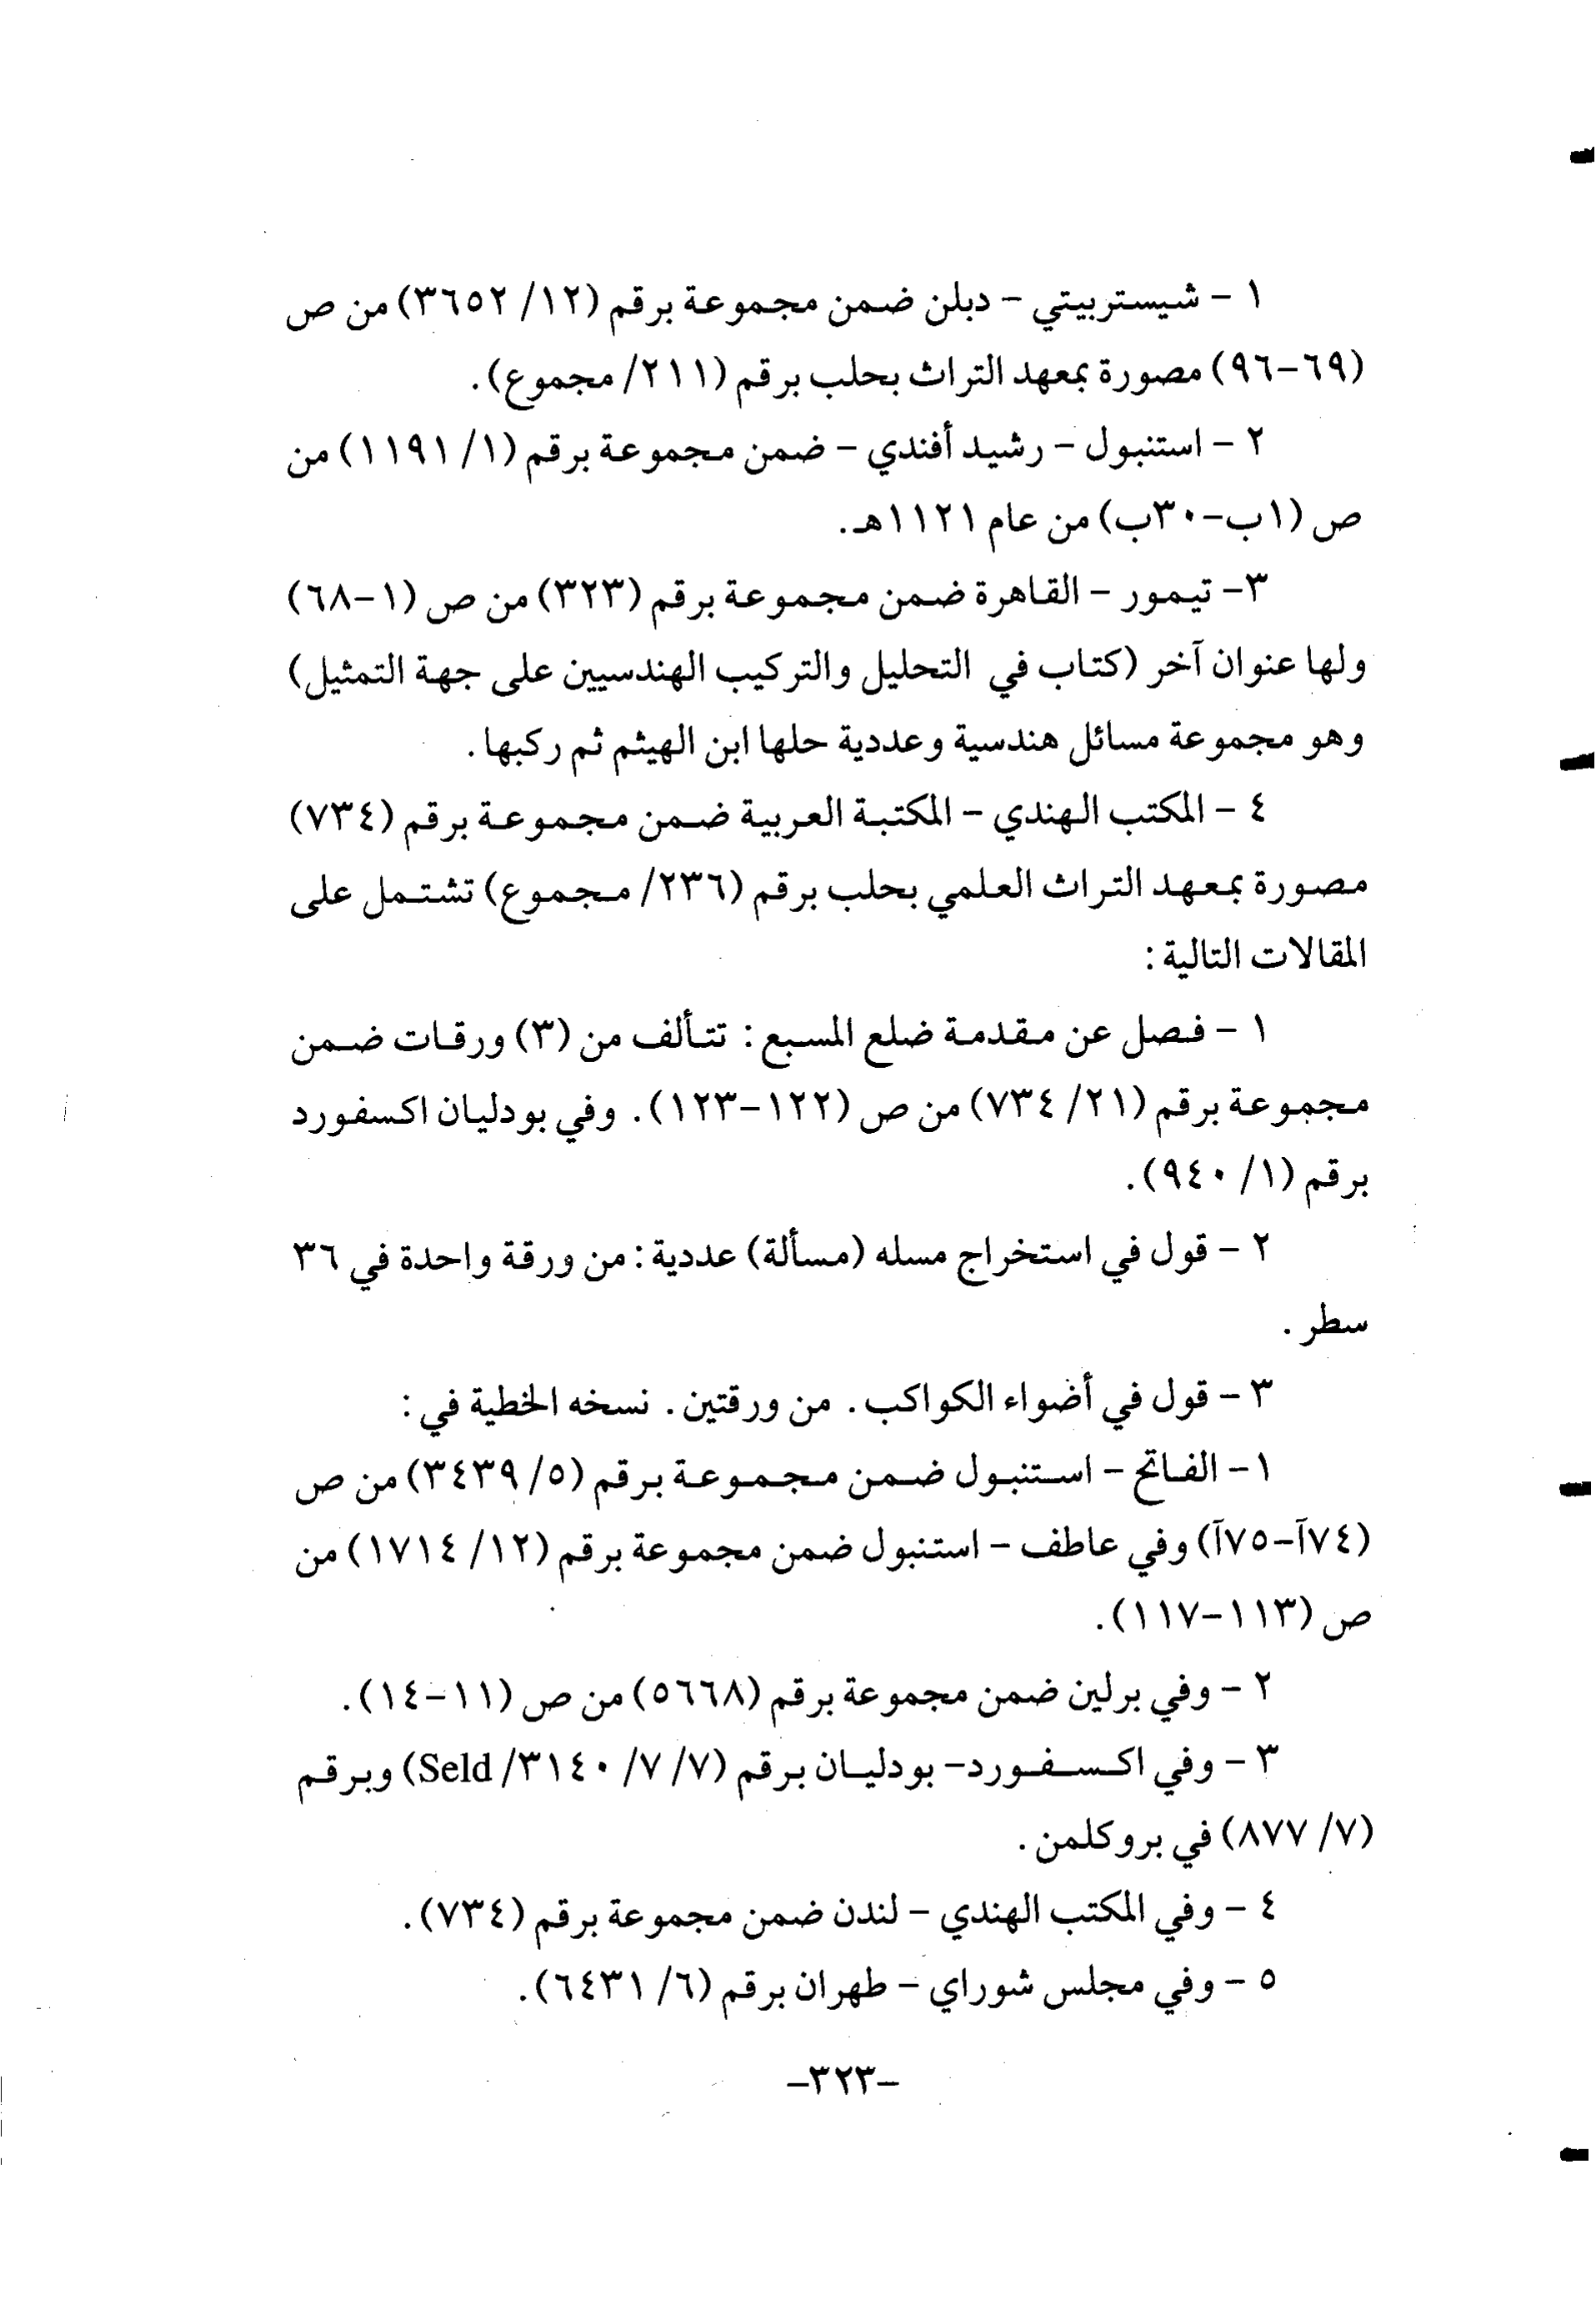 ١ - شيستربيتي - دبلن ضمن مجموعة برقم (١٢/ ٣٦٥٢) من ص
(٦٩-٩٦) مصورة بمعهد التراث بحلب برقم (٢١١/ مجموع).
٢ - استنبول - رشيد أفندي - ضمن مجموعة برقم (١/ ١١٩١) من
ص (١ب-٣٠ب) من عام ١١٢١هـ.
٣- تيمور - القاهرة ضمن مجموعة برقم (٣٢٣) من ص (١-٦٨)
ولها عنوان آخر (كتاب في التحليل والتركيب الهندسيين على جهة التمثيل)
وهو مجموعة مسائل هندسية وعددية حلها ابن الهيثم ثم ركبها.
٤ - المكتب الهندي - المكتبة العربية ضمن مجموعة برقم (٧٣٤)
مصورة بمعهد التراث العلمي بحلب برقم (٢٣٦/ مجموع) تشتمل على
المقالات التالية:
١ - فصل عن مقدمة ضلع المسبع: تتألف من (٣) ورقات ضمن
مجموعة برقم (٢١/ ٧٣٤) من ص (١٢٢-١٢٣). وفي بودليان اكسفورد
برقم (١/ ٩٤٠).
٢ - قول في استخراج مسله (مسألة) عددية: من ورقة واحدة في ٣٦
سطر.
٣ - قول في أضواء الكواكب. من ورقتين. نسخه الخطية في:
١ - الفاتح - استنبول ضمن مجموعة برقم (٥/ ٣٤٣٩) من ص
(٧٤آ-٧٥آ) وفي عاطف - استنبول ضمن مجموعة برقم (١٢/ ١٧١٤) من
ص (١١٣-١١٧).
٢ - وفي برلين ضمن مجموعة برقم (٥٦٦٨) من ص (١١-١٤).
٣ - وفي اكسفورد- بودليان برقم (٧/ ٧/ ٣١٤٠/ Seld) وبرقم
(٧/ ٨٧٧) في بروكلمن.
٤ - وفي المكتب الهندي - لندن ضمن مجموعة برقم (٧٣٤).
٥ - وفي مجلس شوراي - طهران برقم (٦/ ٦٤٣١).
-٣٢٣-